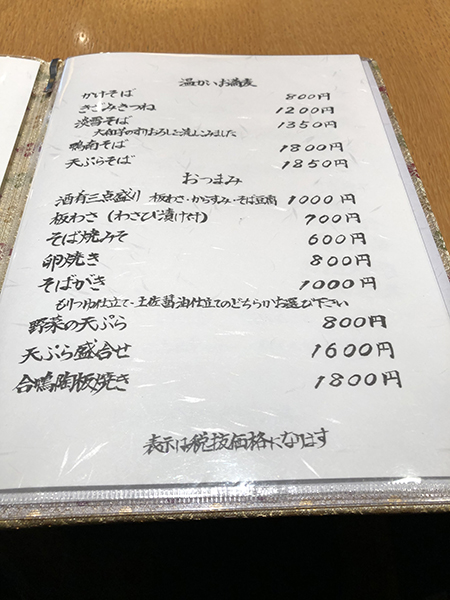 温かいお蕎麦
かけそば 800円
きざみきつね 1200円
淡雪そば 1350円
大和芋のすりおろしを流しこみました
鴨南そば 1800円
天ぷらそば 1850円
おつまみ
酒肴三点盛り 板わさ・からすみ・そば豆腐 1000円
板わさ(わさび漬け付) 700円
そば焼みそ 600円
卵焼き 800円
そばがき 1000円
もりつゆ仕立て・土佐醤油仕立てのどちらかお選び下さい
野菜の天ぷら 800円
天ぷら盛合せ 1600円
合鴨陶板焼き 1800円
表示は税抜価格になります